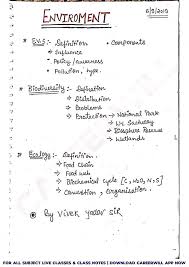 ENVIROMENT
6/8/2019
* EVS:- Definition • Components
→ Influence
→ Policy/awareness
→ Pollution, type.
* Biodiversity:- Defination
→ Distribution
→ Problems
→ Protection → National Park
→ W.L Sanctuary
→ Biosphere Reserve
→ Wetlands
* Ecology:- Defination
→ Food Chain
→ Food web
→ Biochemical Cycle [C, H2O, N, S]
→ Convention, Organisation.
* By Vivek Yadav Sir
FOR ALL SUBJECT LIVE CLASSES & CLASS NOTES | DOWNLOAD CAREERWILL APP NOW